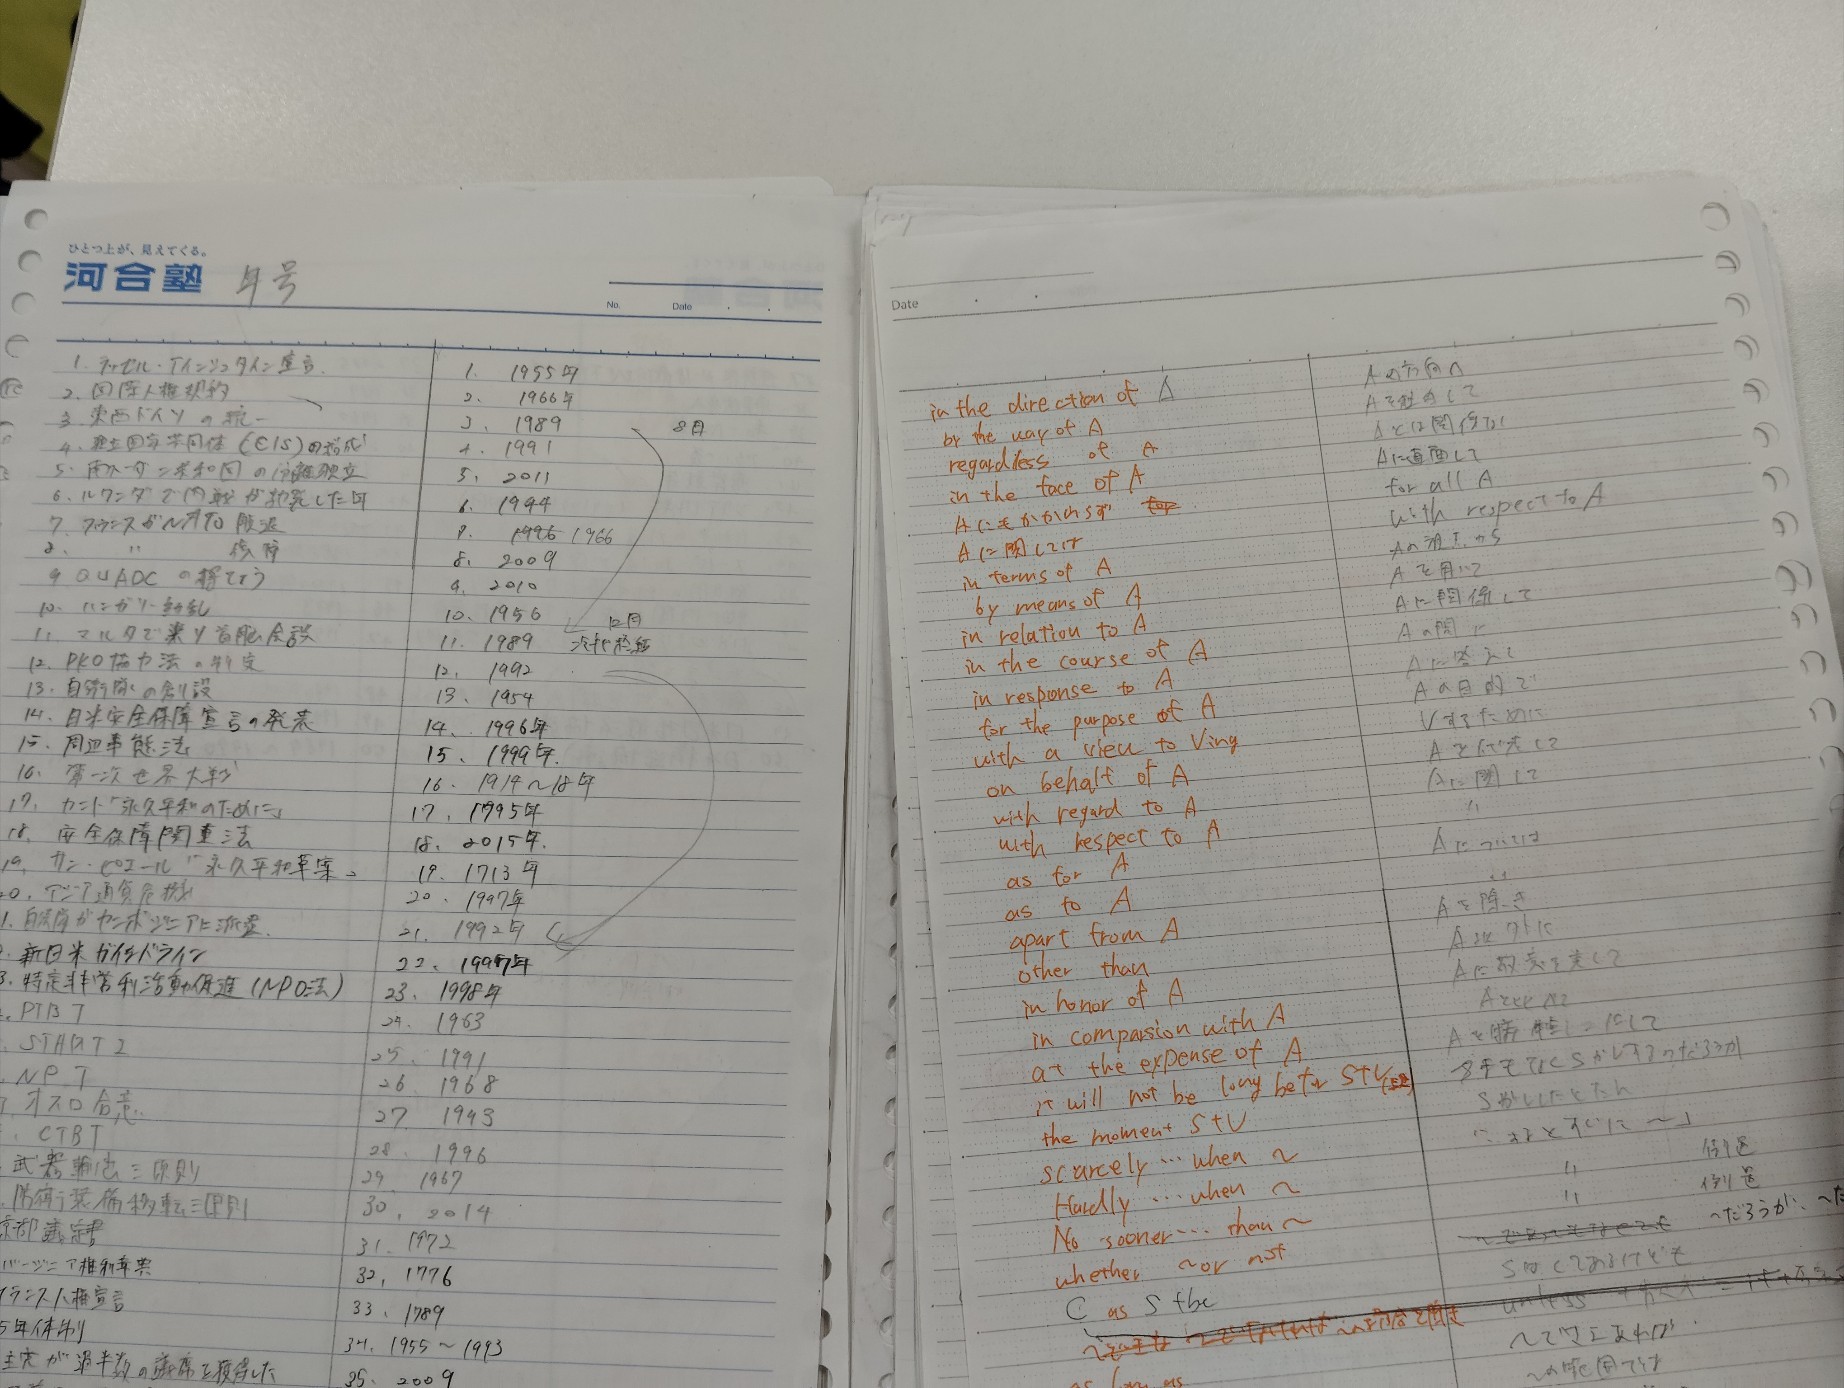 ひとつ上が、見えてくる。
河合塾 年号
No. Date
1. ラッセル・アインシュタイン宣言. 1. 1955年
2. 国際人権規約 2. 1966年
3. 東西ドイツの統一 3. 1989 8月
4. 独立国家共同体(CIS)の形成 4. 1991
5. 南スーダン共和国の分離独立 5. 2011
6. ルワンダで内戦が勃発した年 6. 1994
7. フランスがNATO脱退 7. 1996 1966
8. 〃 復帰 8. 2009
9. 9. 2010
10. ハンガリー動乱 10. 1956 12月
11. マルタで米ソ首脳会談 11. 1989 冷戦終結
12. PKO協力法の制定 12. 1992
13. 自衛隊の創設 13. 1954
14. 日米安全保障宣言の発表 14. 1996年
15. 周辺事態法 15. 1999年.
16. 第一次世界大戦 16. 1914～18年
17. カント「永久平和のために」 17. 1795年
18. 安全保障関連法 18. 2015年.
19. サン・ピエール「永久平和草案」 19. 1713年
20. アジア通貨危機 20. 1997年
1. 自衛隊がカンボジアに派遣. 21. 1992年
新日米ガイドライン 22. 1997年
3. 特定非営利活動促進(NPO法) 23. 1998年
PTBT 24. 1963
START 2 25. 1991
NPT 26. 1968
オスロ合意 27. 1993
CTBT 28. 1996
武器輸出三原則 29. 1967
防衛装備移転三原則 30. 2014
京都議定書 31. 1972
バージニア権利章典 32. 1776
フランス人権宣言 33. 1789
5年体制 34. 1955～1993
主党が過半数の議席を獲得した 35. 2009
Date
in the direction of A Aの方向へ
by the way of A Aを経由して
regardless of A Aとは関係なく
in the face of A Aに直面して
Aにもかかわらず for all A
Aに関しては with respect to A
in terms of A Aの視点から
by means of A Aを用いて
in relation to A Aに関係して
in the course of A Aの間に
in response to A Aに答えて
for the purpose of A Aの目的で
with a view to Ving Vするために
on behalf of A Aを代表して
with regard to A Aに関して
with respect to A 〃
as for A Aについては
as to A 〃
apart from A Aを除き
other than A以外に
in honor of A Aに敬意を表して
in comparsion with A Aと比べて
at the expense of A Aを犠牲にして
it will not be long before S+V
the moment S+V SがVしたとたん
scarcely … when ～
Hardly … when ～ 〃 倒置
No sooner … than ～ 〃 倒置
whether ～ or not
C as S +be
～の範囲では
as long as